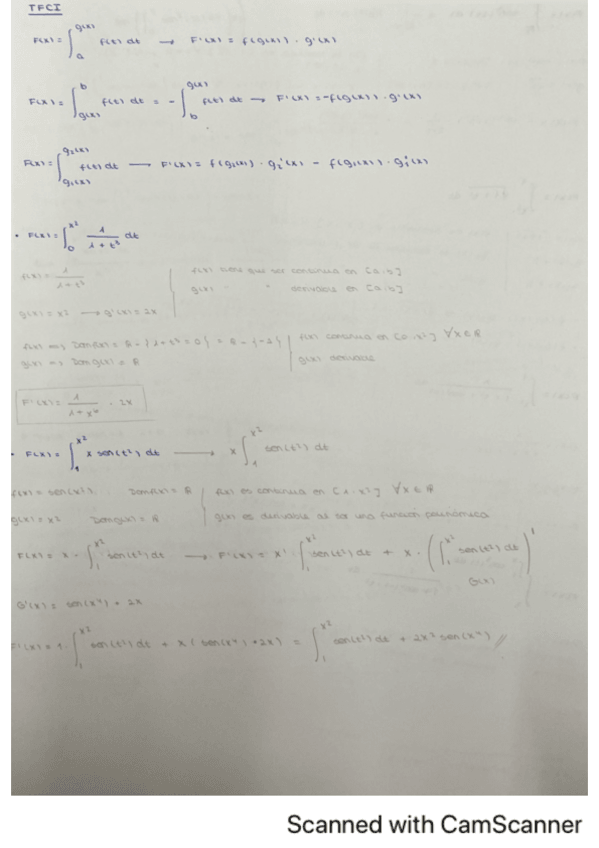 TFCI
F(x) = ∫ₐ^g(x) f(t) dt → F'(x) = f(g(x)) · g'(x)
F(x) = ∫_g(x)^b f(t) dt = - ∫_b^g(x) f(t) dt → F'(x) = -f(g(x)) · g'(x)
F(x) = ∫_g₁(x)^g₂(x) f(t) dt → F'(x) = f(g₂(x)) · g₂'(x) - f(g₁(x)) · g₁'(x)
• F(x) = ∫₀^x² 1/(1 + t³) dt
f(x) = 1/(1+t³) | f(x) tiene que ser continua en [a,b]
g(x) " " derivable en [a,b]
g(x) = x² → g'(x) = 2x
f(x) ⟹ Dom f(x) = R - {1+t³=0} = R - {-1} | f(x) continua en [0,x²] ∀x∈R
g(x) ⟹ Dom g(x) = R | g(x) derivable
F'(x) = 1/(1+x⁶) · 2x
• F(x) = ∫₁^x² x sen(t²) dt → x ∫₁^x² sen(t²) dt
f(x) = sen(x²) Dom f(x) = R | f(x) es continua en [1,x²] ∀x∈R
g(x) = x² Dom g(x) = R | g(x) es derivable al ser una función polinómica
F(x) = x · ∫₁^x² sen(t²) dt → F'(x) = x' · ∫₁^x² sen(t²) dt + x · (∫₁^x² sen(t²) dt)'
G(x)
G'(x) = sen(x⁴) · 2x
F'(x) = 1 · ∫₁^x² sen(t²) dt + x (sen(x⁴) · 2x) = ∫₁^x² sen(t²) dt + 2x² sen(x⁴) //
Scanned with CamScanner